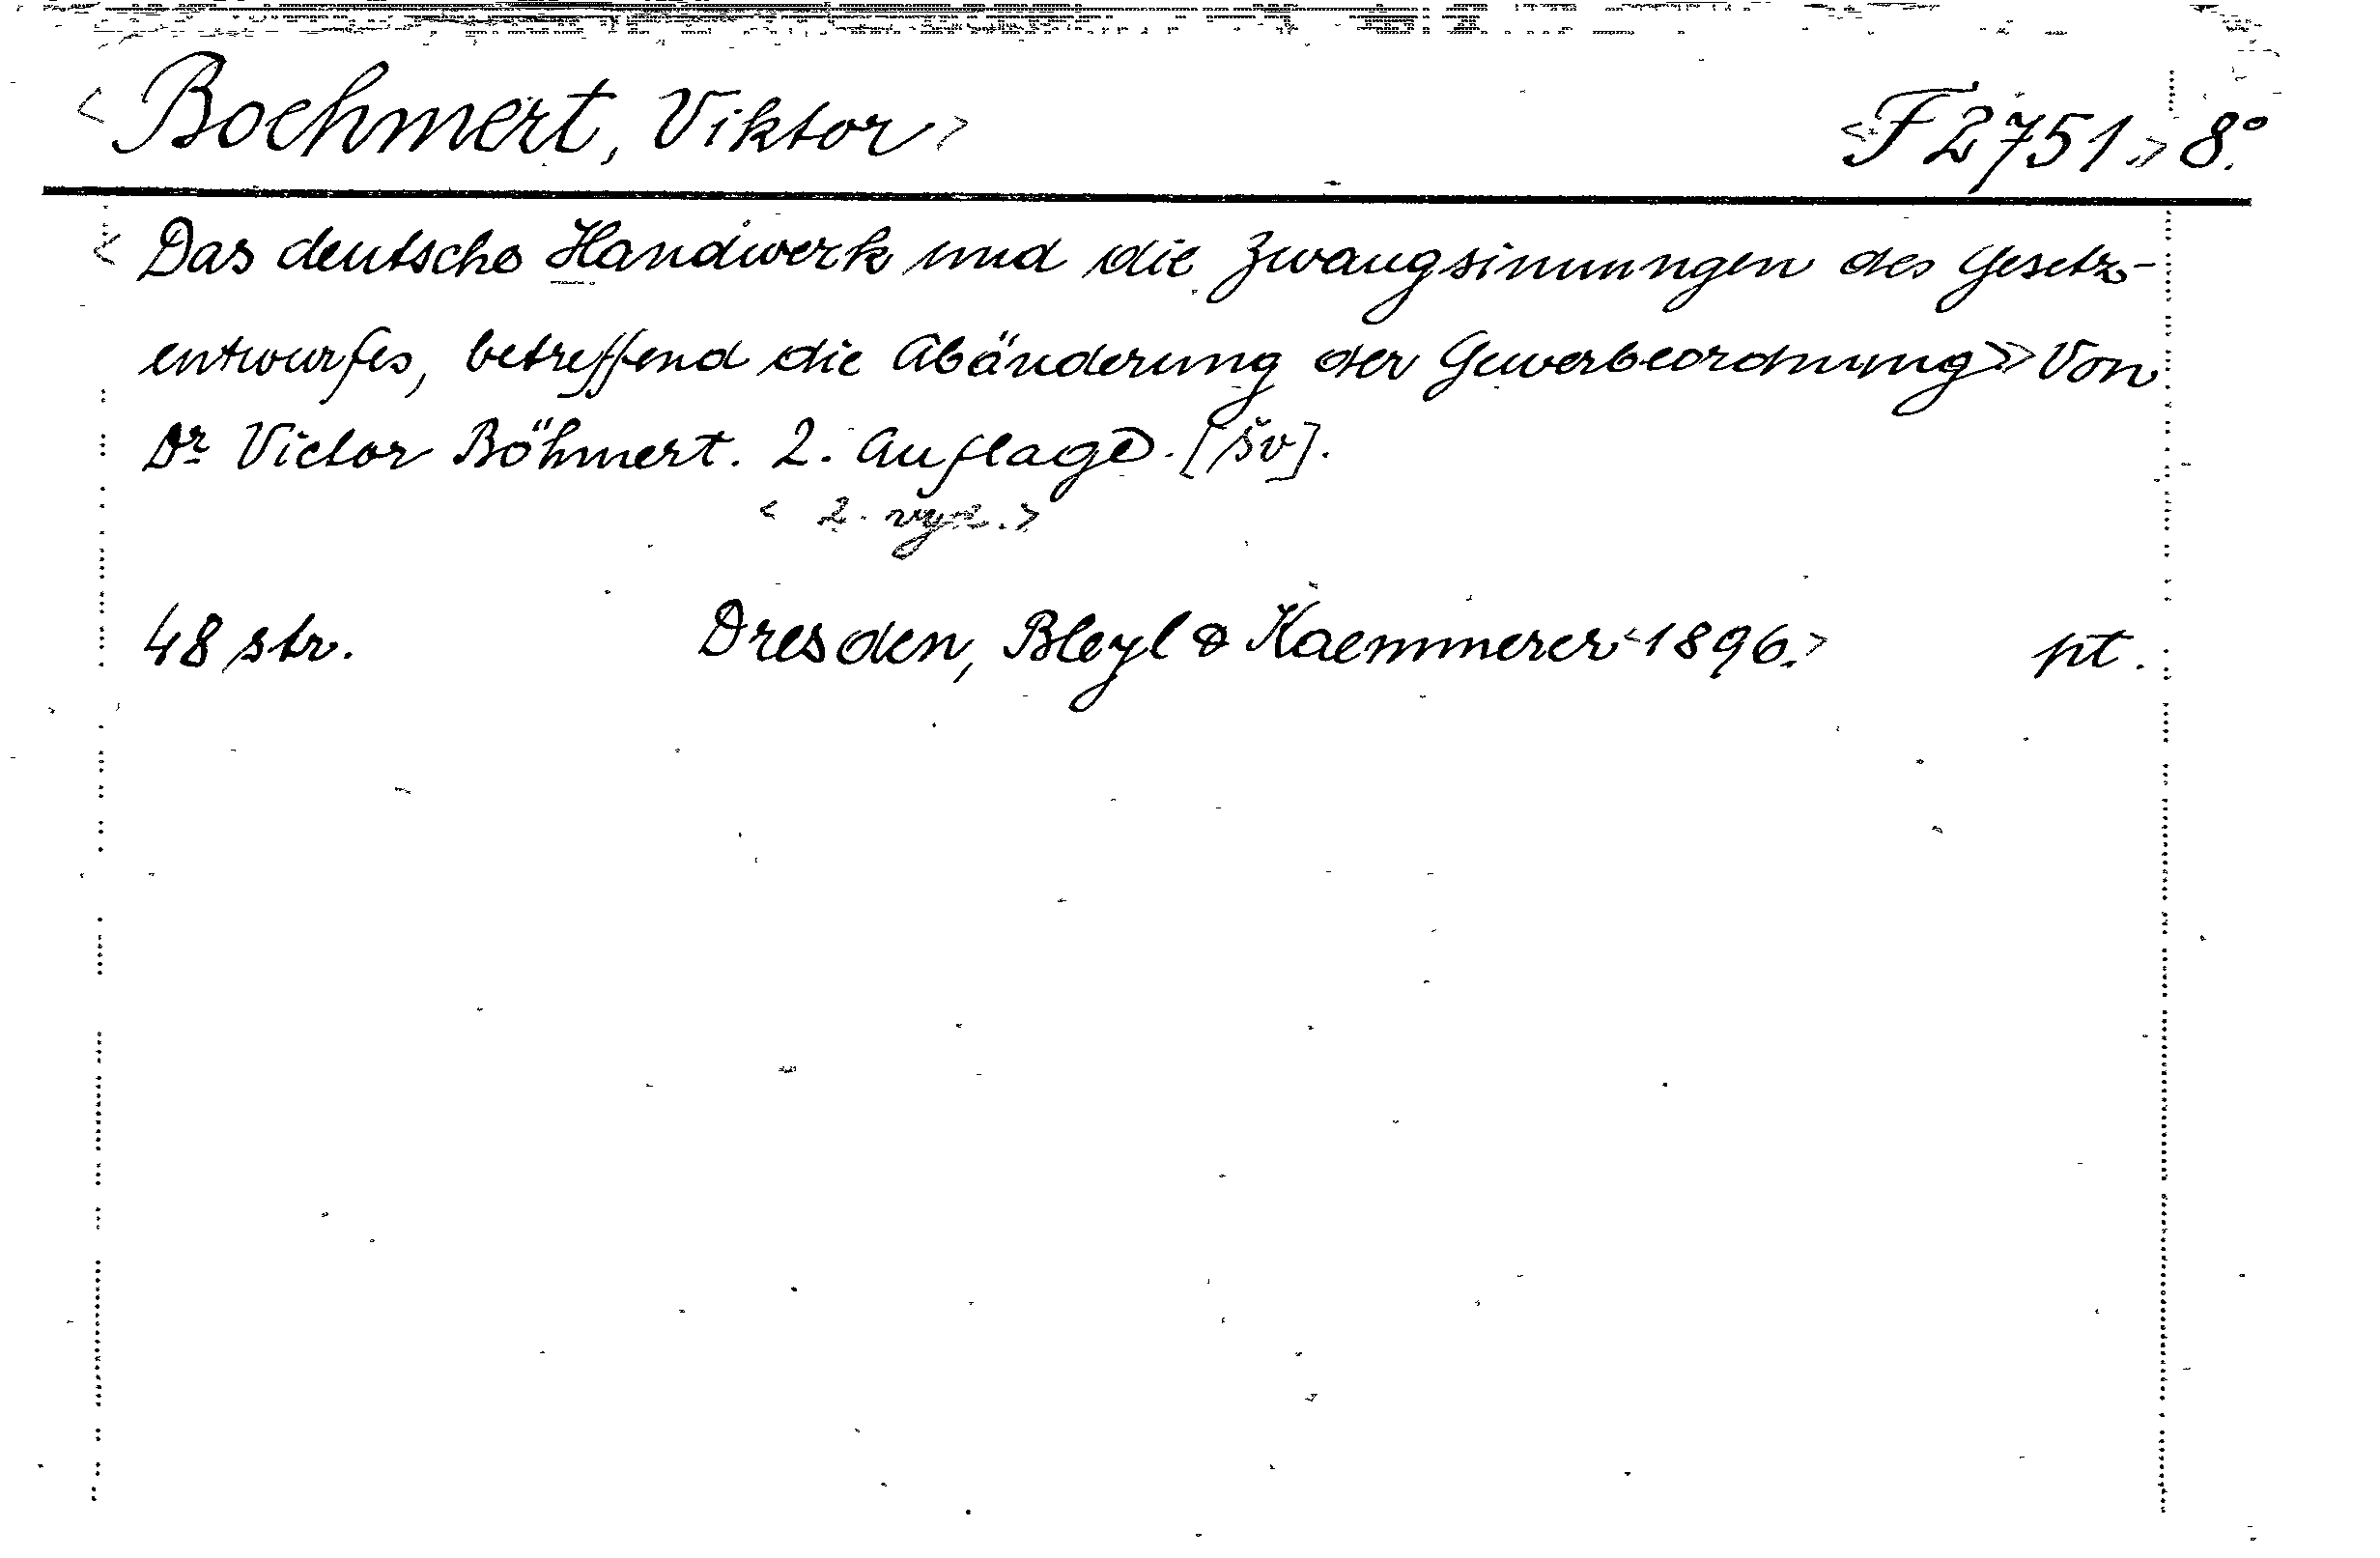 <Boehmert, Viktor> <F 2751> 8°.
<Das deutsche Handwerk und die Zwangsinnungen des Gesetz-
entwurfes, betreffend die Abänderung der Gewerbeordnung>> Von
Dr Victor Böhmert. 2. Auflage. [šv].
< 2. vyd.>
48 str. Dresden, Bleyl & Kaemmerer <1896.> pt.